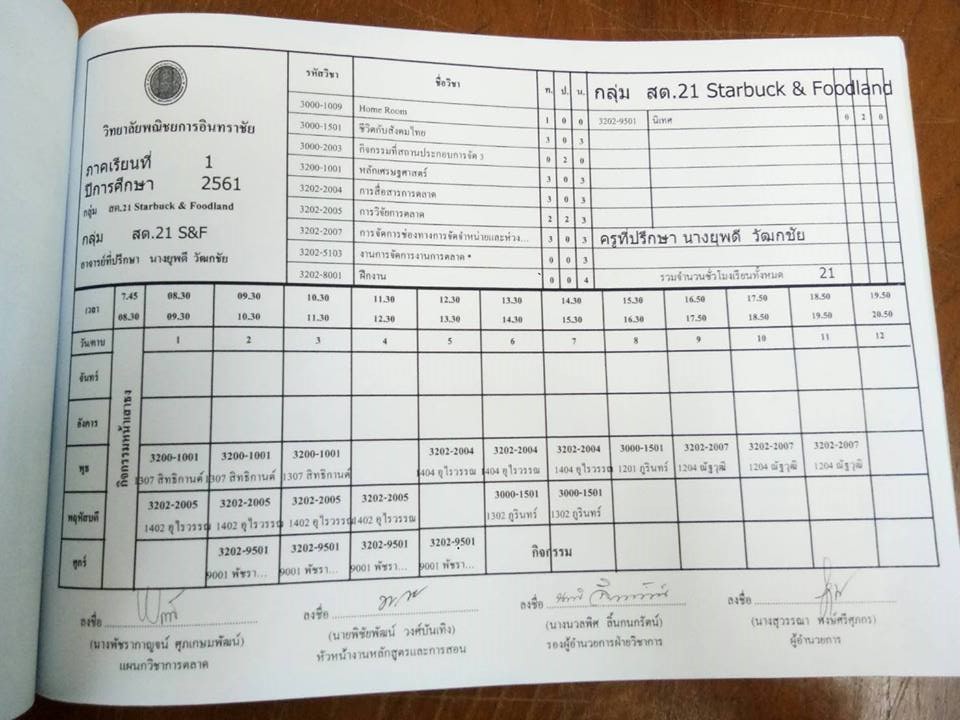 วิทยาลัยพณิชยการอินทราชัย
ภาคเรียนที่ 1
ปีการศึกษา 2561
กลุ่ม สต.21 Starbuck & Foodland
กลุ่ม สต.21 S&F
อาจารย์ที่ปรึกษา นางยุพดี วัฒกชัย
รหัสวิชา ชื่อวิชา ท. ป. น.
3000-1009 Home Room 1 0 0
3000-1501 ชีวิตกับสังคมไทย 3 0 3
3000-2003 กิจกรรมที่สถานประกอบการจัด 3 0 2 0
3200-1001 หลักเศรษฐศาสตร์ 3 0 3
3202-2004 การสื่อสารการตลาด 3 0 3
3202-2005 การวิจัยการตลาด 2 2 3
3202-2007 การจัดการช่องทางการจัดจำหน่ายและห่วง... 3 0 3
3202-5103 งานการจัดการงานการตลาด * 0 0 3
3202-8001 ฝึกงาน 0 0 4
กลุ่ม สต.21 Starbuck & Foodland
3202-9501 นิเทศ 0 2 0
ครูที่ปรึกษา นางยุพดี วัฒกชัย
รวมจำนวนชั่วโมงเรียนทั้งหมด 21
เวลา 7.45 08.30 09.30 10.30 11.30 12.30 13.30 14.30 15.30 16.50 17.50 18.50 19.50
08.30 09.30 10.30 11.30 12.30 13.30 14.30 15.30 16.30 17.50 18.50 19.50 20.50
วัน/คาบ 1 2 3 4 5 6 7 8 9 10 11 12
กิจกรรมหน้าเสาธง
จันทร์
อังคาร
พุธ 3200-1001 3200-1001 3200-1001 3202-2004 3202-2004 3202-2004 3000-1501 3202-2007 3202-2007 3202-2007
1307 สิทธิกานต์ 1307 สิทธิกานต์ 1307 สิทธิกานต์ 1404 อุไรวรรณ 1404 อุไรวรรณ 1404 อุไรวรรณ 1201 ภูรินทร์ 1204 ณัฐวุฒิ 1204 ณัฐวุฒิ 1204 ณัฐวุฒิ
พฤหัสบดี 3202-2005 3202-2005 3202-2005 3202-2005 3000-1501 3000-1501
1402 อุไรวรรณ 1402 อุไรวรรณ 1402 อุไรวรรณ 1402 อุไรวรรณ 1302 ภูรินทร์ 1302 ภูรินทร์
ศุกร์ 3202-9501 3202-9501 3202-9501 3202-9501 กิจกรรม
9001 พัชรา... 9001 พัชรา... 9001 พัชรา... 9001 พัชรา...
ลงชื่อ ลงชื่อ ลงชื่อ ลงชื่อ
(นางพัชรากาญจน์ ศุภเกษมพัฒน์) (นายพิชัยพัฒน์ วงศ์บันเทิง) (นางนวลพิศ ลิ้นกนกรัตน์) (นางสุวรรณา พงษ์ศรีศุภกร)
แผนกวิชาการตลาด หัวหน้างานหลักสูตรและการสอน รองผู้อำนวยการฝ่ายวิชาการ ผู้อำนวยการ